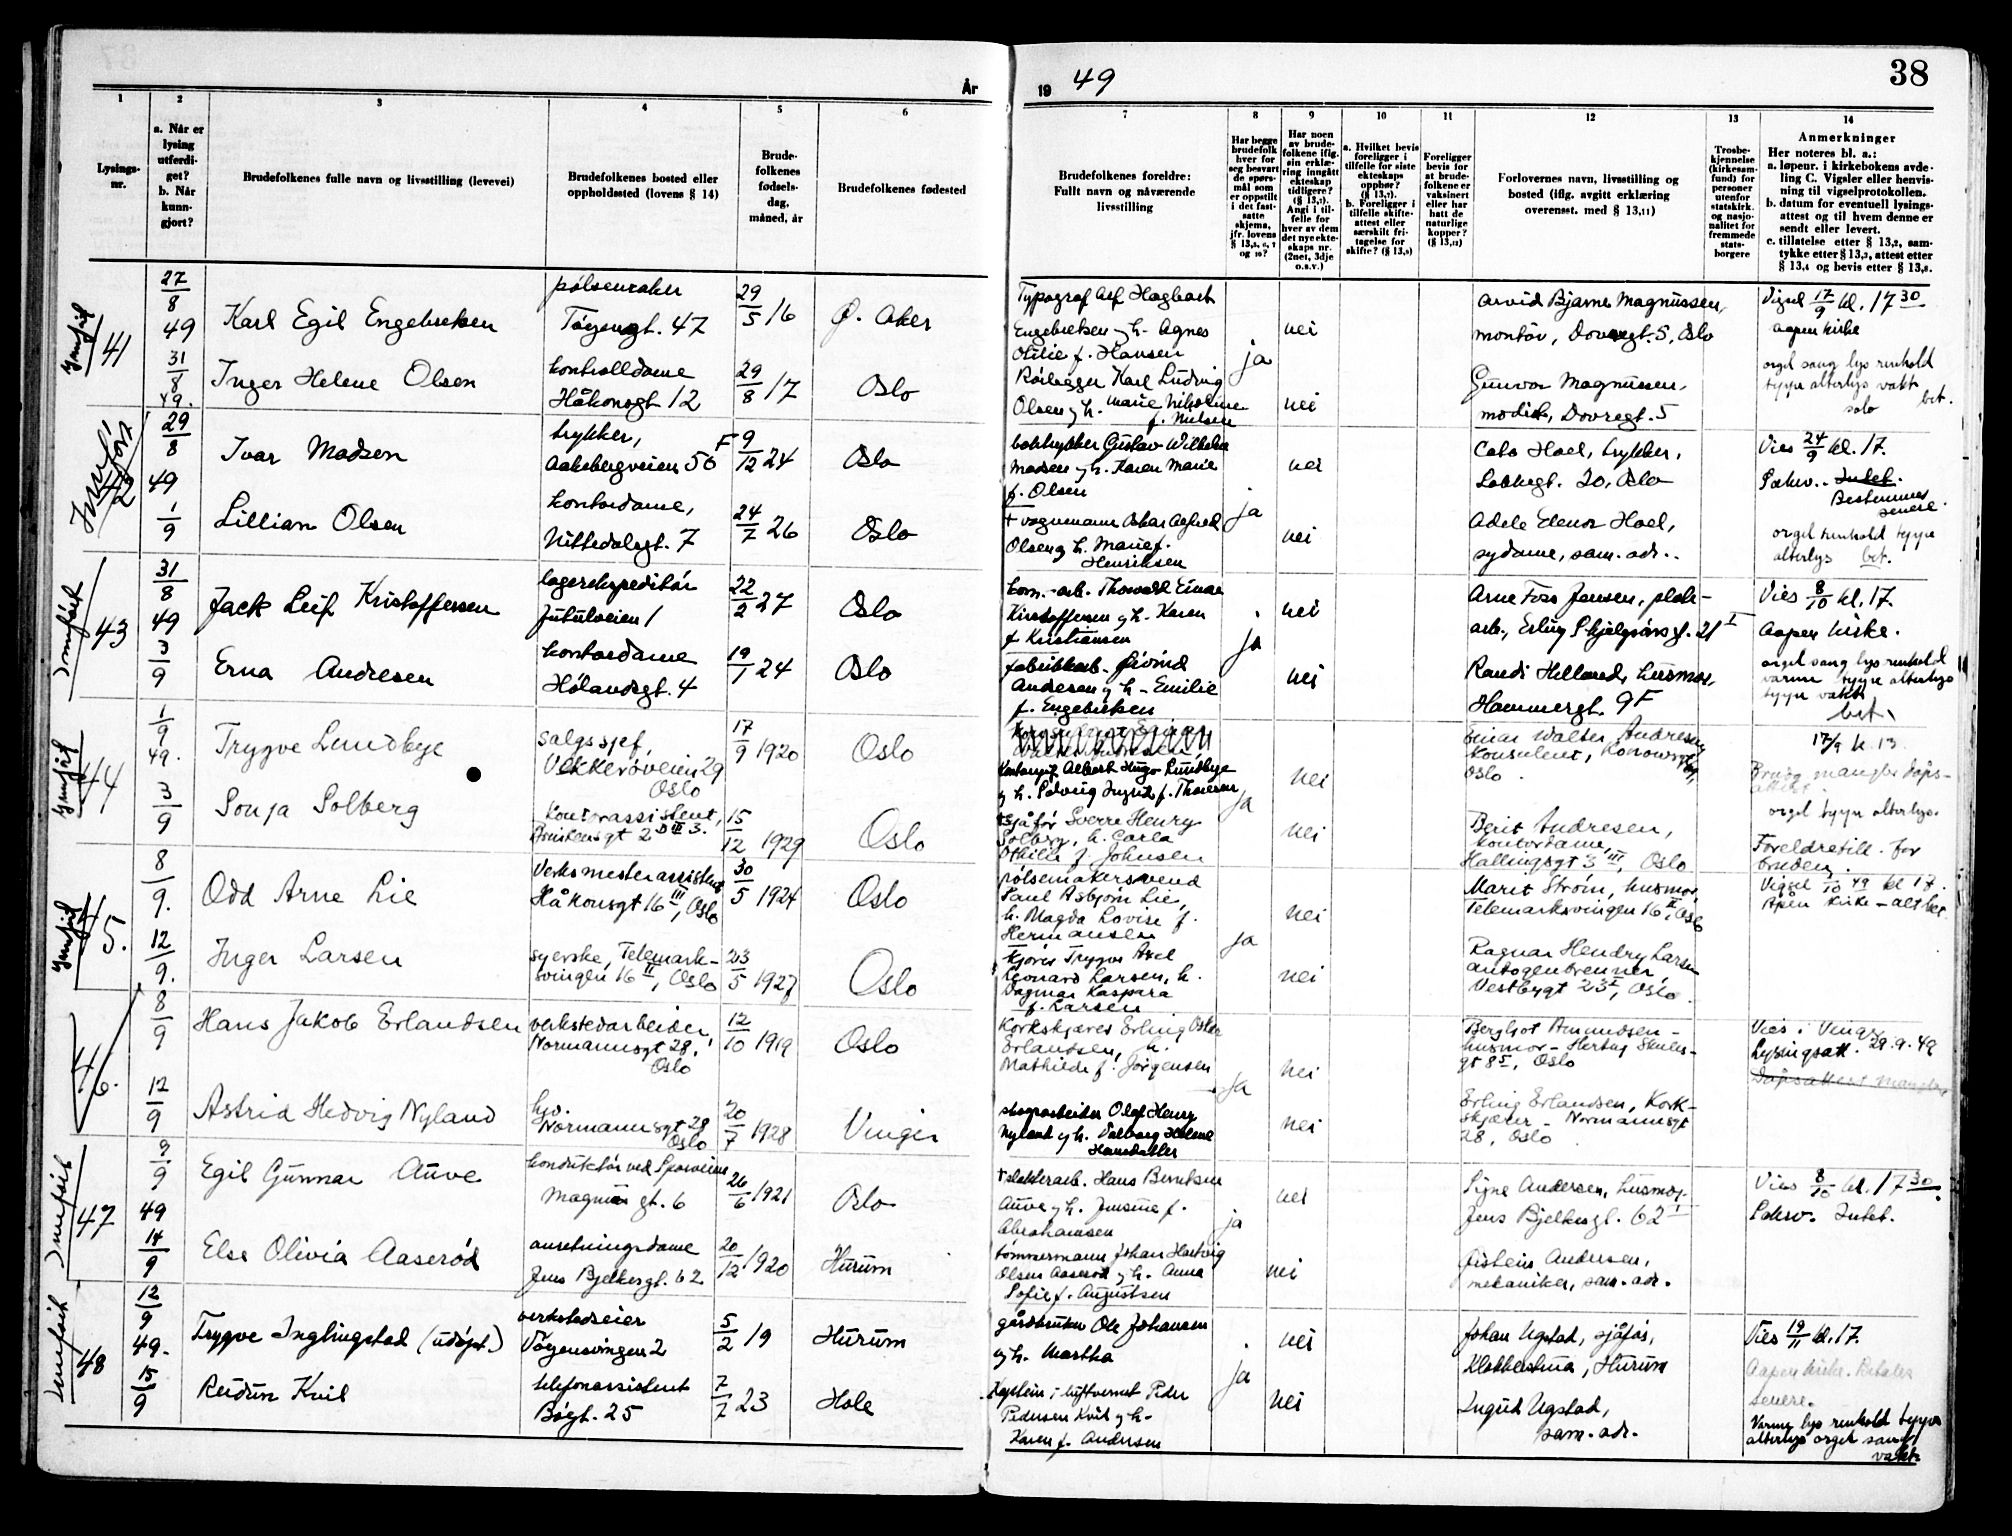 År
19 49
38
1
2
3
4
5
6
7
8
9
10
11
12
13
14
Lysings-
nr.
a. Når er
lysing
utferdi-
get?
b. Når
kunn-
gjort?
Brudefolkenes fulle navn og livsstilling (levevei)
Brudefolkenes bosted eller
oppholdssted (lovens § 14)
Brude-
folkenes
fødsels-
dag,
måned, år
Brudefolkenes fødested
Brudefolkenes foreldre:
Fullt navn og nåværende
livsstilling
Har begge
brudefolk
hver for
seg besvart
de spørs-
mål som
er oppstilt
i det fast-
satte
skjema,
jfr. lovens
Har noen
av brude-
folkene iflg.
sin erklæ-
ring inngått
ekteskap
tidligere?
Angi i til-
felle for
hver av dem
det nye ekte-
skaps nr.
(2net, 3dje
o.s.v.)
a. Hvilket bevis
foreligger i
tilfelle for siste
ekteskaps
opphør?
b. Foreligger i
tilfelle skifte-
attest eller
særskilt fri-
tagelse for
skifte?
Foreligger
bevis for
at brude-
folkene er
vaksinert
eller har
hatt de
naturlige
kopper?
Forlovernes navn, livsstilling og
bosted (iflg. avgitt erklæring
overensst. med § 13,11)
Trosbe-
kjennelse
(kirkesam-
fund) for
personer
utenfor
statskirk.
og nasjo-
nalitet for
fremmede
stats-
borgere
Anmerkninger
Her noteres bl. a.:
a. løpenr. i kirkebokens avde-
ling C. Vigsler eller henvis-
ning til vigselprotokollen.
b. datum for eventuell lysings-
attest og til hvem denne er
sendt eller levert.
c. tillatelse etter § 13,2, sam-
tykke etter § 13,3, attest etter
§ 13,4 og bevis etter § 13,8.
41
27/8 49
Karl Egil Engebretsen
pølsemaker
Tøyengt. 47
29/5 16
Ø. Aker
Typograf Alf Hagbart
Engebretsen og h. Agnes
Otilie f. Hansen
ja
nei
Arvid Bjarne Magnussen,
montør, Dovregt. 5, Oslo
Vigsel 17/9 kl. 17 30
aapen kirke
31/8 49.
Inger Helene Olsen
kontrolldame
Håkonsgt 12
29/8 17
Oslo
Rørlegger Karl Ludvig
Olsen og h. Marie Nikoline
f. Nielsen
nei
Gunvor Magnussen,
modist, Dovregt. 5
orgel sang lys renhold
teppe alterlys vakt
solo bet.
42
29/8 49
Ivar Madsen
trykker,
Aakebergveien 50 F
9/12 24
Oslo
boktrykker Gustav Wilhelm
Madsen og h. Karen Marie
f. Olsen
ja
nei
Cato Hoel, trykker,
Oslo
Vies 24/9 kl. 17.
Intet.
Bestemmes
senere.
1/9
Lillian Olsen
kontordame,
Nittedalsgt. 7
24/7 26
Oslo
+ vognmann Oskar Alfred
Olsen og h. Marie f.
Henriksen
nei
Adele Elenor Hoel,
sydame, sam. adr..
orgel renhold teppe
alterlys bet.
43
31/8 49
Jack Leif Kristoffersen
lagerekspeditør
Jutulveien 1
22/2 27
Oslo
kom.-arb. Thorvald Einar
Kristoffersen og h. Karen
f. Kristiansen
ja
nei
Arne Foss Jensen, plate-
arb., Erling Skjalgssons gt. 21 I
Vies 8/10 kl. 17.
Aapen kirke.
3/9
Erna Andresen
kontordame
Hølandsgt. 4
19/1 24
Oslo
fabrikkarb. Eivind
Andresen og h. Emilie
f. Engebretsen
nei
Randi Helland, husmor,
Hammergt. 9F
orgel sang lys renhold
varme teppe alterlys
teppe vakt
bet.
44
1/9 49.
Trygve Lundbye
salgssjef,
Vekkerøveien 29
Oslo
17/9 1920
Oslo
Albert Hugo Lundbye
og h. Solveig Ingrid f. Thoresen
ja
nei
Einar Walter Andresen
konsulent,
Oslo.
17/9 k. 13.
Brudg. mangler dåps-
attest.
3/9
Sonja Solberg
kontorassistent,
15/12 1929
Oslo
sjåfør Sverre Henry
Solberg, h. Carla
Othilie f. Johnsen
nei
Berit Andresen,
kontordame,
Hallingsgt 3 III, Oslo
orgel teppe alterlys.
Foreldretill. for
bruden.
45.
8/9.
Odd Arne Lie
Verksmesterassistent
Håkonsgt 16 III, Oslo
30/5 1924
Oslo
pølsemakersvend
Paul Asbjørn Lie,
h. Magda Lovise f.
Hermansen
ja
nei
Marit Strøm, husmor,
Telemarksvingen 16 II, Oslo
Vigsel 1/10 49 kl 17.
Åpen kirke - alt bet.
12/9.
Inger Larsen
syerske, Telemark-
svingen 16 II, Oslo
23/5 1927
Oslo
kjører Trygve Axel
Leonard Larsen, h.
Dagmar Kaspara
f. Larsen
nei
Ragnar Hendry Larsen
autogenbrenner,
Vestbygt 23 I, Oslo.
46.
8/9
Hans Jakob Erlandsen
verkstedarbeider,
Normannsgt 28,
Oslo
12/10 1919
Oslo
Korkskjærer Erling Oskar
Erlandsen, h.
Mathilde f. Jørgensen
ja
nei
Bergljot Amundsen -
husmor - Hertug Skules-
gt 8 5, Oslo
Vies i Vinger
Lysingsatt. 29.9.49
Dåpsattest mangler
12/9
Astrid Hedvig Nyland
hjv.
Normannsgt 28
Oslo
20/7 1928
Vinger
skogsarbeider Olaf Henry
Nyland og h. Valborg Helene
Hansdatter
nei
Erling Erlandsen, Kork-
skjærer - Normannsgt
28, Oslo
47
9/9 49
Egil Gunnar Auve
konduktør ved Sporveiene
Magnus gt. 6
26/6 1921
Oslo
+ slakterarb. Hans Berntsen
Auve og h. Jensine f.
Abrahamsen
ja
nei
Signe Andersen, husmor
Jens Bjelkesgt. 62 I
Vies 8/10 kl. 17 30.
Intet.
14/9
Else Olivia Aaserød
anretningsdame
Jens Bjelkesgt. 62
20/12 1920
Hurum
tømmermann Johan Hartvig
Olsen Aaserød og h. Anna
Sofie f. Augustsen
nei
Øistein Andersen,
mekaniker, sam. adr.
48
12/9 49.
Trygve Inglingstad (udøpt.)
verkstedseier
Tøyensvingen 2
5/2 19
Hurum
gårdbruker Ole Johansen
og h. Martha
ja
nei
Johan Ugstad, sjåfør,
Klokkestua, Hurum
Vies 19/11 kl. 17.
Aapen kirke. Betales
senere.
15/9
Reidun Kvil
telefonassistent
Bøgt. 25
7/7 23
Hole
Kaptein i luftvernet Peder
Pedersen Kvil og h.
Karen f. Andersen
nei
Ingrid Ugstad,
sam. adr.
Varme lys renhold teppe
alterlys orgel sang
vakt.